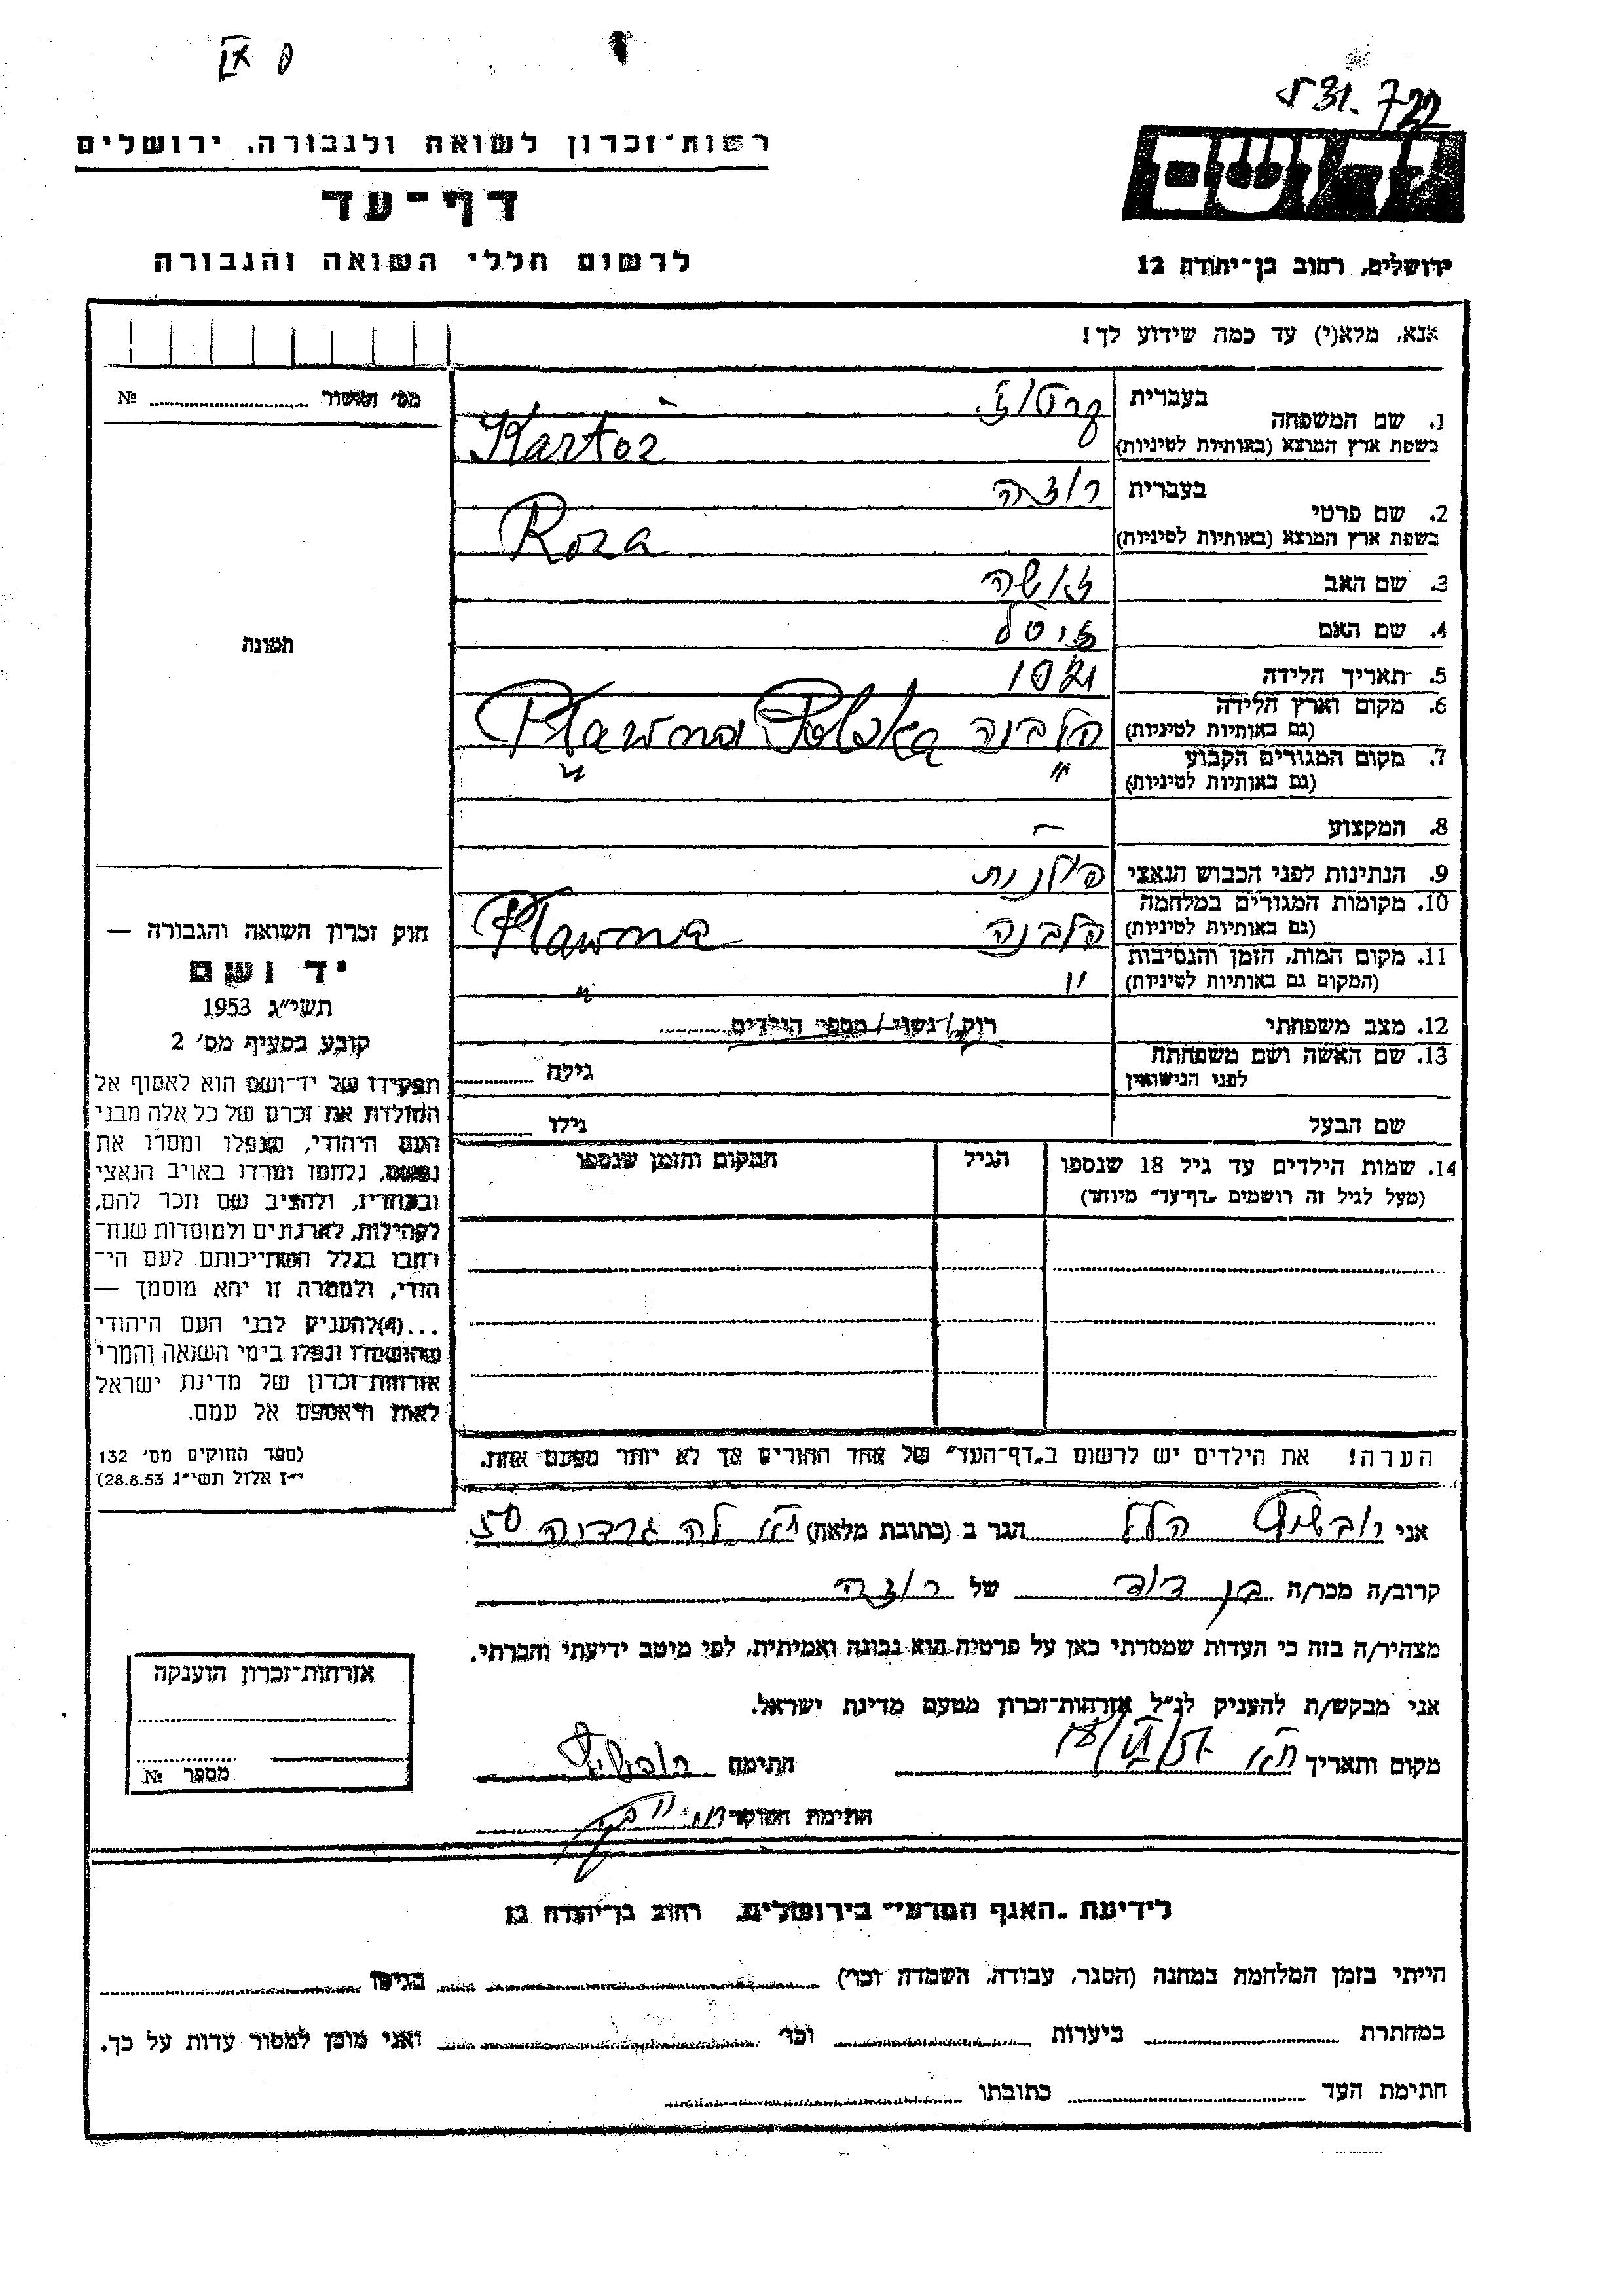 531.722
רשות־זכרון לשואה ולגבורה, ירושלים
דף־עד
לרשום חללי השואה והגבורה
ירושלים, רחוב בן־יהודה 12
אנא, מלא(י) עד כמה שידוע לך!
מס׳ ואשור № 
1. שם המשפחה בעברית קרטוז
בשפת ארץ המוצא (באותיות לטיניות) Kartoz
2. שם פרטי בעברית רוזה
בשפת ארץ המוצא (באותיות לטיניות) Roza
3. שם האב
4. שם האם
5. תאריך הלידה
6. מקום וארץ הלידה (גם באותיות לטיניות) פלבנה Plawna Polska
7. מקום המגורים הקבוע (גם באותיות לטיניות) " "
8. המקצוע –
9. הנתינות לפני הכבוש הנאצי פולנית
10. מקומות המגורים במלחמה (גם באותיות לטיניות) פלבנה Plawna
11. מקום המות, הזמן והנסיבות (המקום גם באותיות לטיניות) " "
12. מצב משפחתי רוק / נשוי / מספר הילדים
13. שם האשה ושם משפחתה לפני הנישואין גילה
שם הבעל גילו
14. שמות הילדים עד גיל 18 שנספו הגיל המקום והזמן שנספו
(מעל לגיל זה רושמים „דף־עד״ מיוחד)
תמונה
חוק זכרון השואה והגבורה —
יד ושם
תשי״ג 1953
קובע בסעיף מס׳ 2
תפקידו של יד־ושם הוא לאסוף אל
המולדת את זכרם של כל אלה מבני
העם היהודי, שנפלו ומסרו את
נפשם, נלחמו ומרדו באויב הנאצי
ובעוזריו, ולהציב שם וזכר להם,
לקהילות, לארגונים ולמוסדות שנח־
רבו בגלל השתייכותם לעם הי־
הודי, ולמטרה זו יהא מוסמך —
...(4)להעניק לבני העם היהודי
שהושמדו ונפלו בימי השואה והמרי
אזרחות־זכרון של מדינת ישראל
לאות היאספם אל עמם.
(ספר החוקים מס׳ 132
י״ז אלול תשי״ג 28.8.53)
הערה! את הילדים יש לרשום ב„דף־העד״ של אחד ההורים אך לא יותר מפעם אחת.
אני רובשטיין הלל הגר ב (כתובת מלאה) ת"א לה גרדיה 50
קרוב/ה מכר/ה בן דוד של רוזה
מצהיר/ה בזה כי העדות שמסרתי כאן על פרטיה היא נכונה ואמיתית, לפי מיטב ידיעתי והכרתי.
אני מבקש/ת להעניק לנ״ל אזרחות־זכרון מטעם מדינת ישראל.
מקום ותאריך ת"א חתימה
חתימת הפוקד
אזרחות־זכרון הוענקה
מספר №
לידיעת „האגף המדעי״ בירושלים, רחוב בן־יהודה 12
הייתי בזמן המלחמה במחנה (הסגר, עבודה, השמדה וכו׳) בגיטו
במחתרת ביערות וכו׳ ואני מוכן למסור עדות על כך.
חתימת העד כתובתו